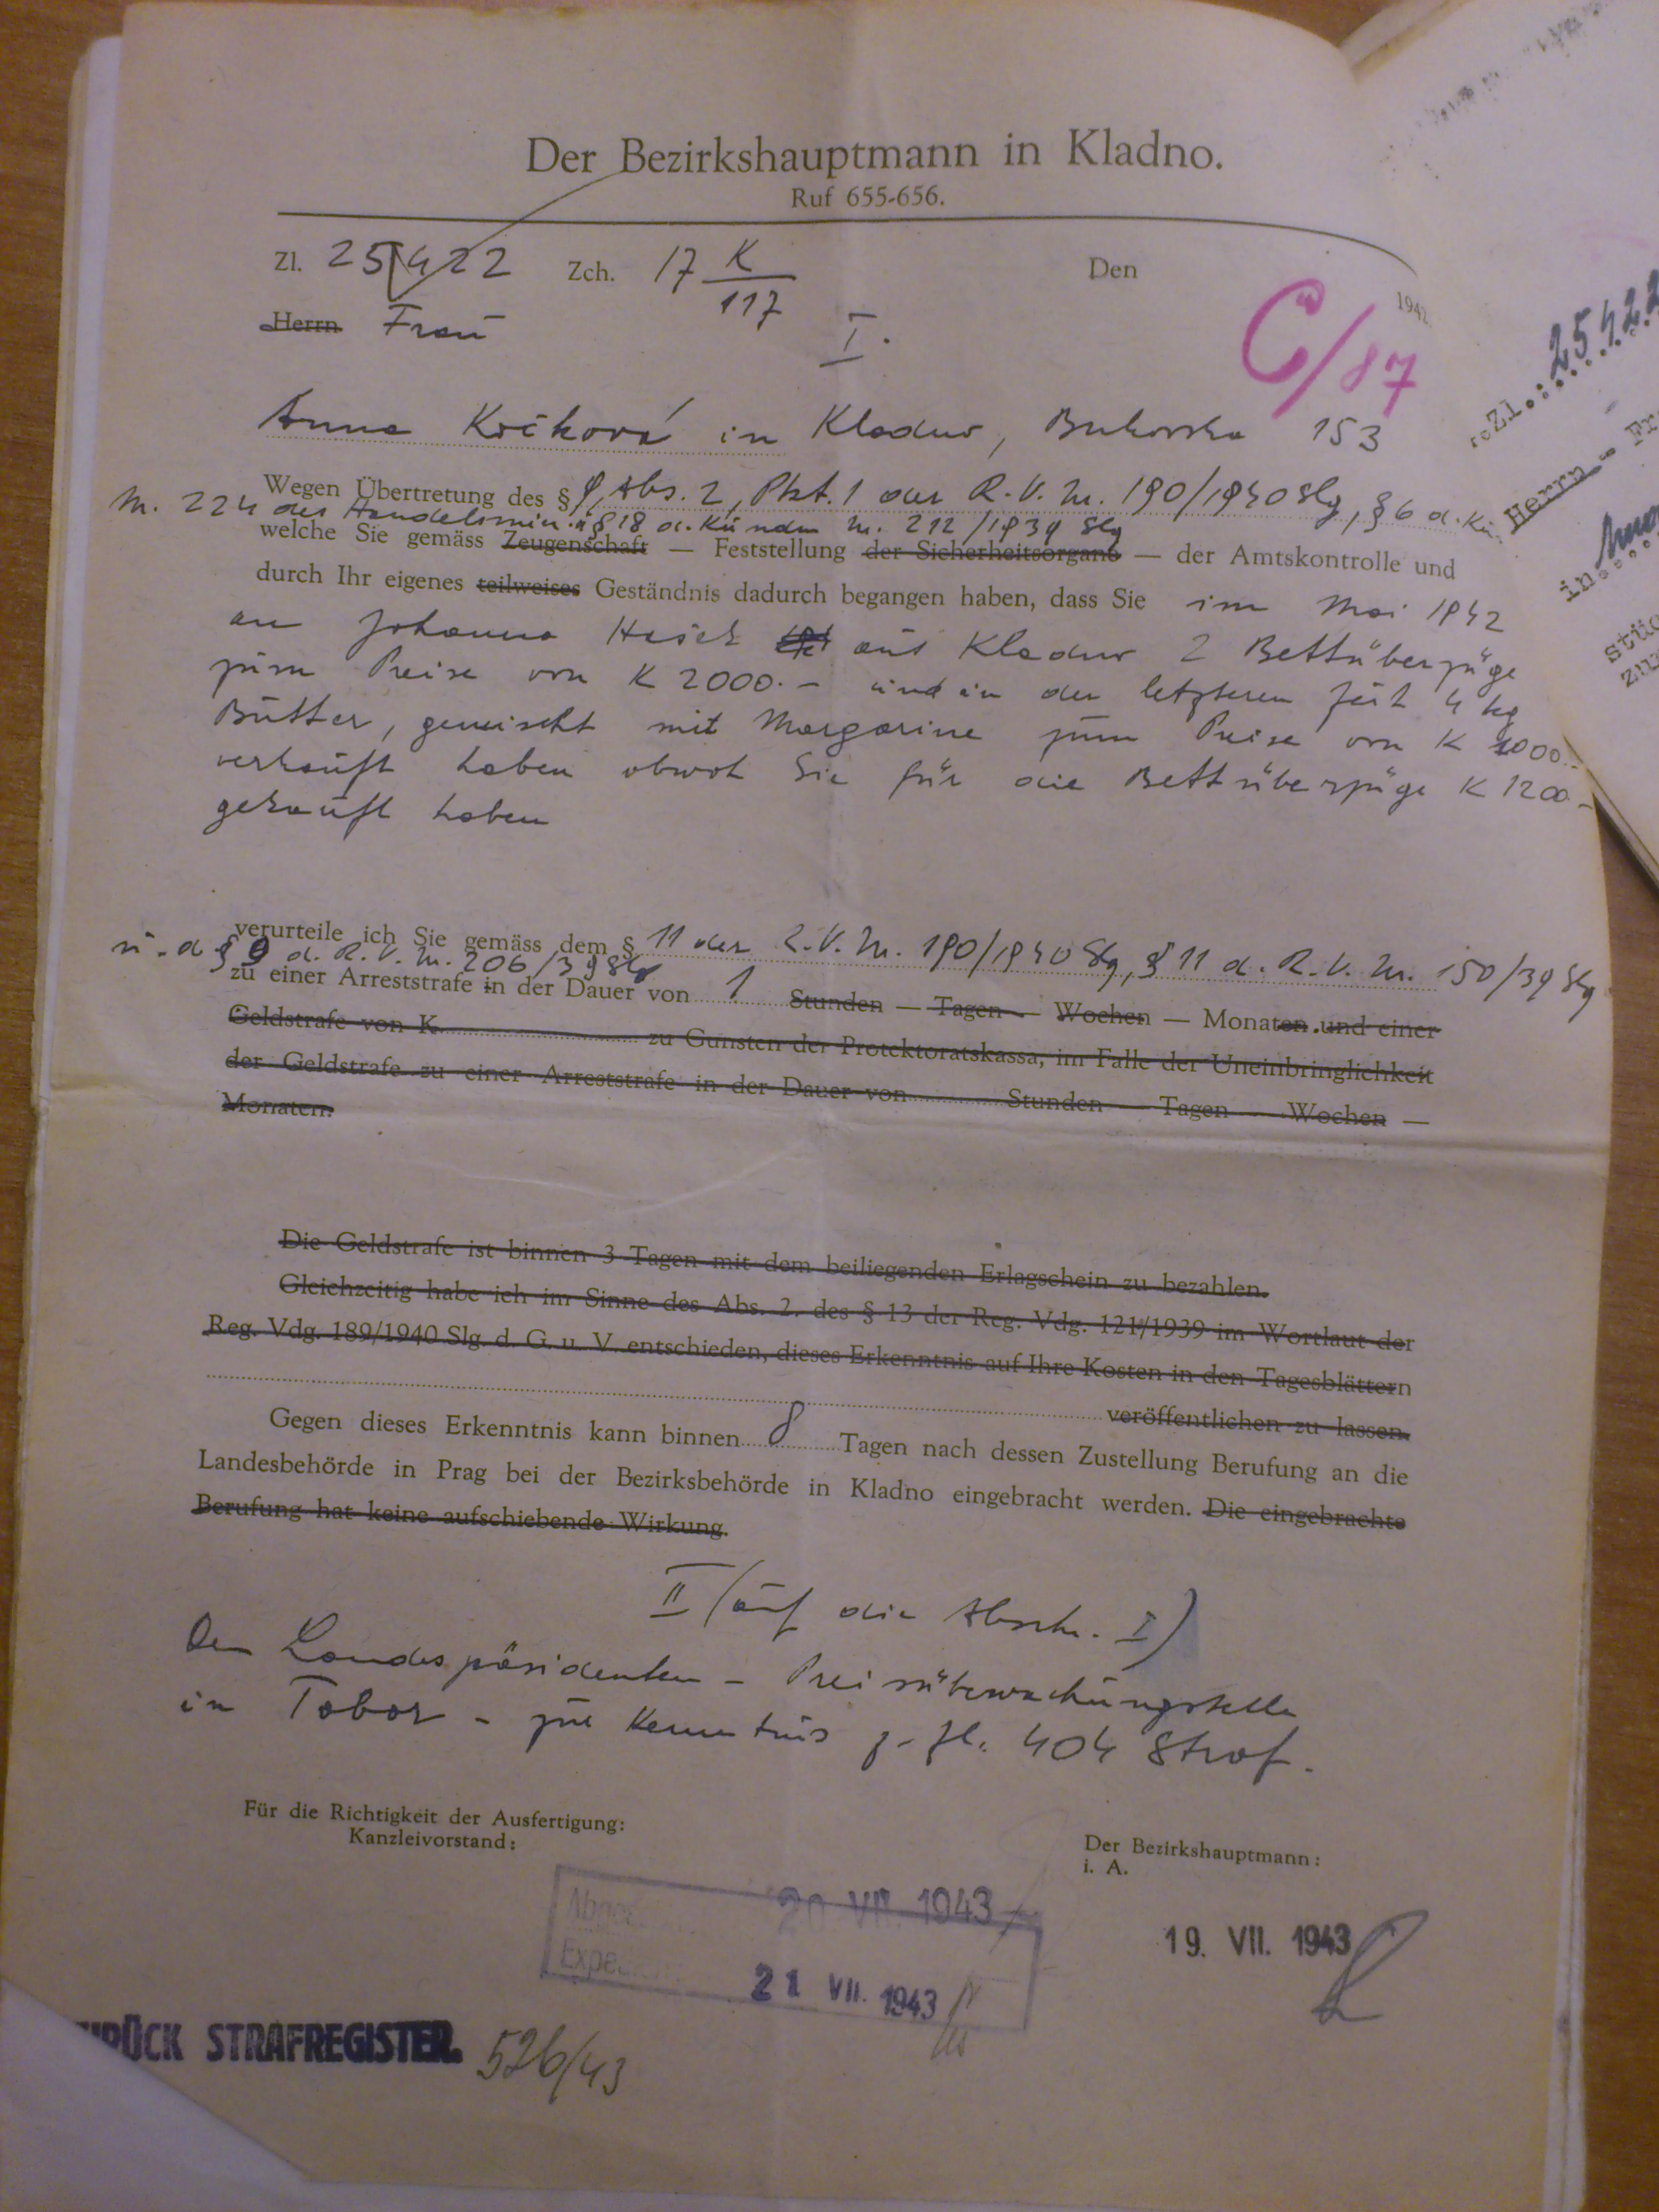 Der Bezirkshauptmann in Kladno.
Ruf 655-656.
Zl. 25422 Zch. 17 K/117 Den 1942.
Herrn Frau
I.
C/87
Anna Kočková in Kladno, 153
Wegen Übertretung des § 9, Abs. 2, Pkt. 1 der R.V. Nr. 190/1940 Slg, § 6 d. Kü.
Nr. 224 des Handelsmin. u § 18 d. Kundm Nr. 212/1939 Slg
welche Sie gemäss Zeugenschaft — Feststellung der Sicherheitsorgane — der Amtskontrolle und
durch Ihr eigenes teilweises Geständnis dadurch begangen haben, dass Sie im Mai 1942
an Johanna Hašek aus Kladno 2 Bettüberzüge
zum Preise von K 2000.- und in der letzteren Zeit 4 kg
Butter, gemischt mit Margarine zum Preise von K 1000.-
verkauft haben obwoh Sie für die Bettüberzüge K 1200.-
gekauft haben
verurteile ich Sie gemäss dem § 11 der R.V. Nr. 190/1940 Slg, § 11 d. R.V. Nr. 150/39 Slg
u. d § 9 d. R.V. Nr. 206/39 Slg
zu einer Arreststrafe in der Dauer von 1 Stunden — Tagen — Wochen — Monaten und einer
Geldstrafe von K zu Gunsten der Protektoratskassa, im Falle der Uneinbringlichkeit
der Geldstrafe zu einer Arreststrafe in der Dauer von Stunden — Tagen — Wochen —
Monaten.
Die Geldstrafe ist binnen 3 Tagen mit dem beiliegenden Erlagschein zu bezahlen.
Gleichzeitig habe ich im Sinne des Abs. 2. des § 13 der Reg. Vdg. 121/1939 im Wortlaut der
Reg. Vdg. 189/1940 Slg. d. G. u. V. entschieden, dieses Erkenntnis auf Ihre Kosten in den Tagesblättern
veröffentlichen zu lassen.
Gegen dieses Erkenntnis kann binnen 8 Tagen nach dessen Zustellung Berufung an die
Landesbehörde in Prag bei der Bezirksbehörde in Kladno eingebracht werden. Die eingebrachte
Berufung hat keine aufschiebende Wirkung.
II (auf die Abschr. I)
Dem Landespräsidenten - Preisüberwachungstelle
in Tabor - zur Kenntnis z. Zl. 404 Straf.
Für die Richtigkeit der Ausfertigung:
Kanzleivorstand:
Der Bezirkshauptmann:
i. A.
20 VII. 1943
19. VII. 1943
21 VII. 1943
ZURÜCK STRAFREGISTER. 526/43
Zl. 25422
Herrn - Fr
in